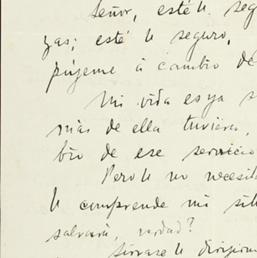 Señor, esté Ud. seg
zas; esté Ud. seguro,
píjeme á cambio de
Mi vida es ya s
más de ella tuviera,
bio de ese servicio
Pero Ud. no necesit
Ud. comprende mi sit
salvará, verdad?
Sírvase Ud. dirigirm